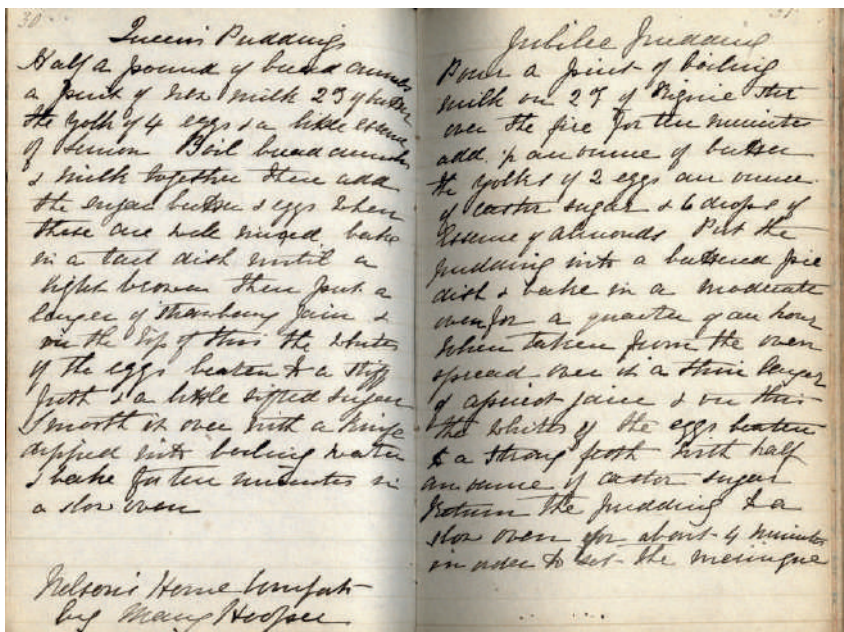 30
Queen's Puddings
Half a pound of bread crumbs
a pint of new milk 2 of butter
the yolk of 4 eggs & a little essence
of Lemon Boil bread crumbs
& milk together then add
the sugar butter & eggs when
these are well mixed bake
in a tart dish until a
light brown then put a
layer of strawberry jam &
on the top of this the whites
of the eggs beaten to a stiff
froth & a little sifted sugar
Smooth it over with a knife
dipped into boiling water
& bake for ten minutes in
a slow oven
Nelson's Home Comforts
by Mary Hooper
31
Jubilee Pudding
Pour a pint of boiling
milk on 2 of stir
over the fire for ten minutes
add ½ an ounce of butter
the yolks of 2 eggs an ounce
of castor sugar & 6 drops of
Essence of almonds Put the
pudding into a buttered pie
dish & bake in a moderate
oven for a quarter of an hour
When taken from the oven
spread over it a thin layer
of apricot jam & on this
the whites of the eggs beaten
to a strong froth with half
an ounce of castor sugar
Return the pudding to a
slow oven for about 4 minutes
in order to set the meringue